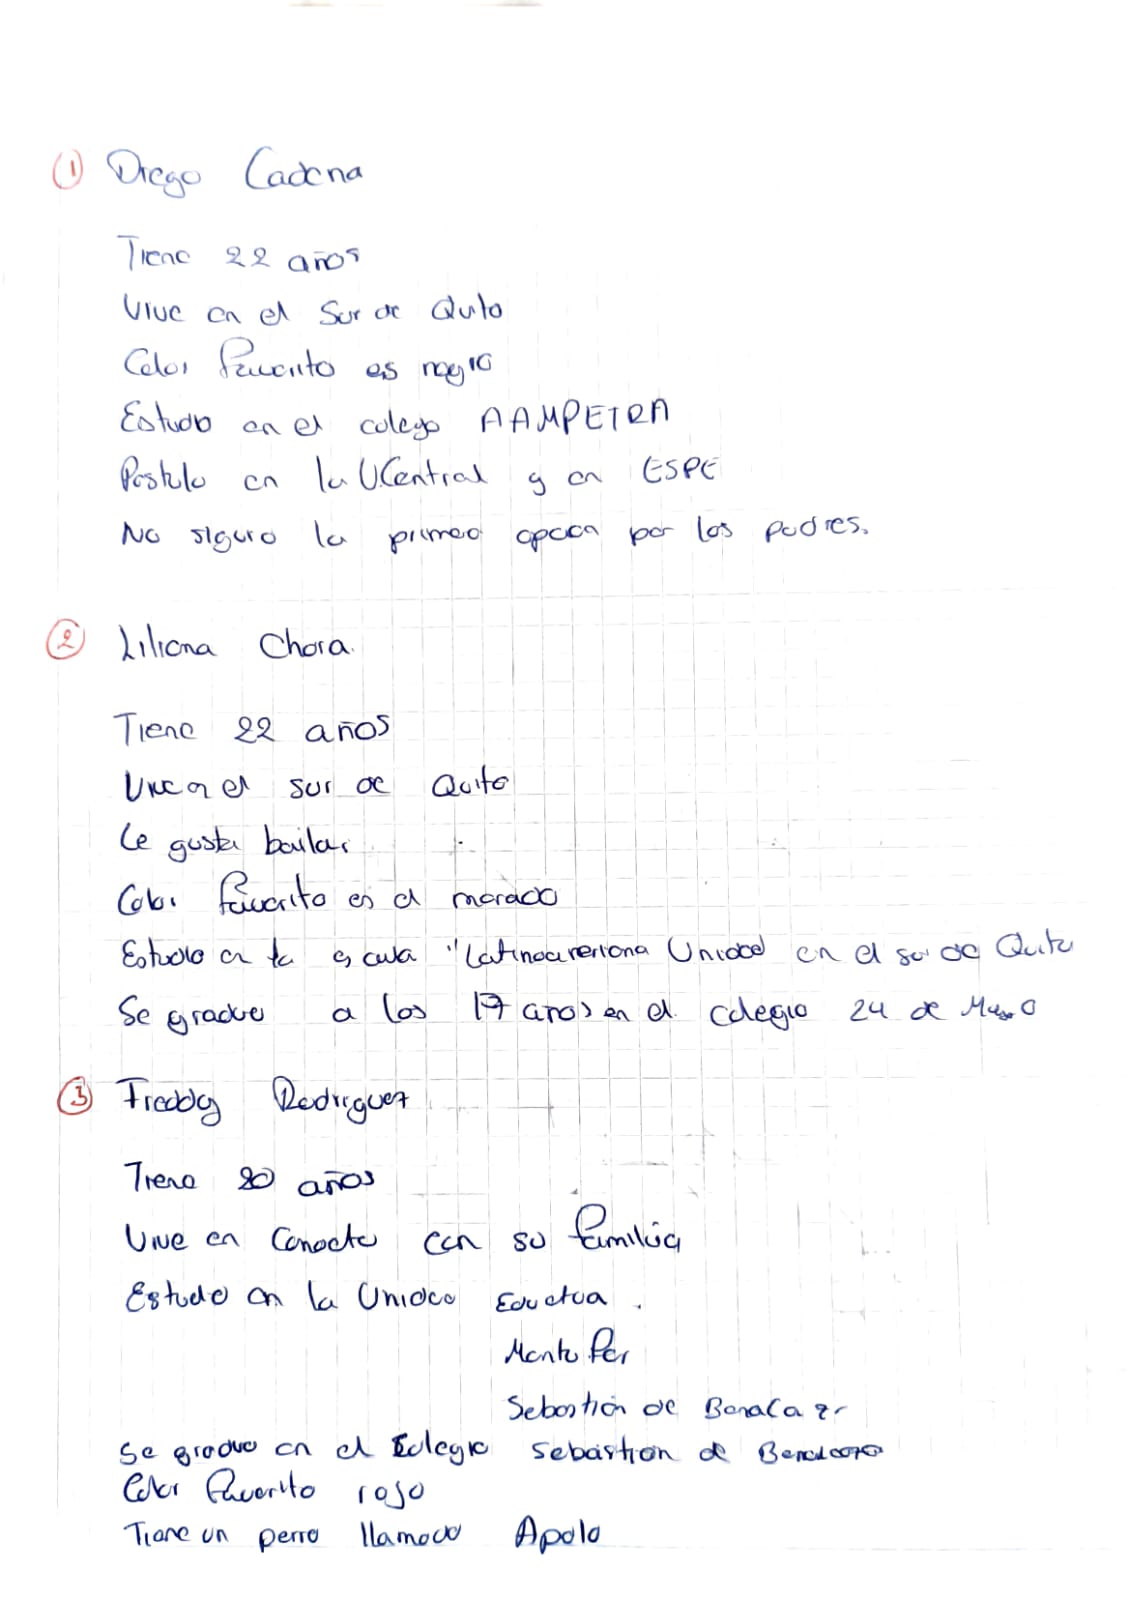 1 Diego Cadena
Tiene 22 años
Vive en el Sur de Quito
Color Favorito es negro
Estudio en el colegio AAMPETRA
Postulo en la U.Central y en ESPE
No siguio la primera opcion por los padres.
2 Liliana Chora.
Tiene 22 años
Vive en el sur de Quito
Le gusta bailar
Color favorito es el morado
Estudio en la escuela "Latinoamericana Unidad en el sur de Quito
Se graduo a los 17 años en el colegio 24 de Mayo
3 Freddy Rodriguez
Tiene 20 años
Vive en Conocto con su familia
Estudio en la Unidad Eductiva.
Sebastión de Benalcazr
Se graduo en el Colegio Sebastian de Benalcazar
Color Favorito rojo
Tiene un perro llamado Apolo